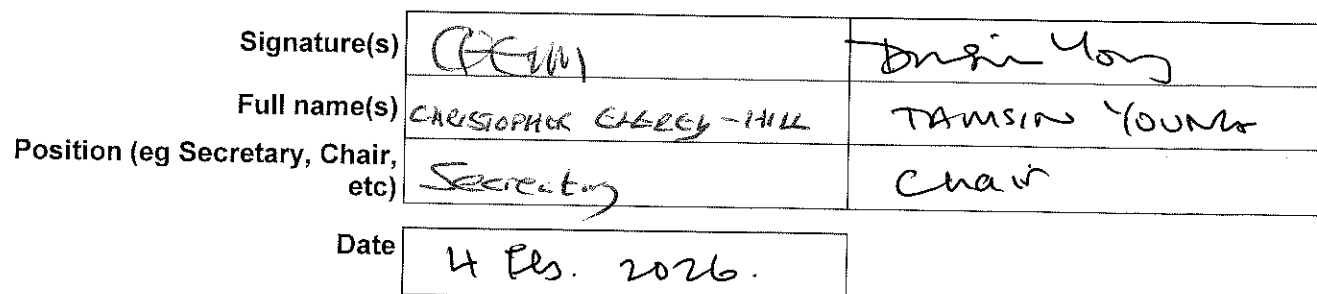 Signature(s) Tamsin Young
Full name(s) CHRISTOPHER ELLERBY-HILL TAMSIN YOUNG
Position (eg Secretary, Chair,
etc) Secretary Chair
Date 4 Feb. 2026.